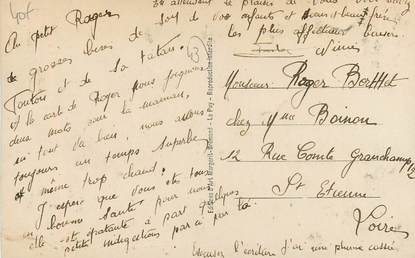 Au petit Roger
de grosses bises de
Tonton et de la tatan.
Et la carte de Roger nous joignons
deux mots pour la maman,
ici tout va bien, nous avons
toujours un temps superbe
et même trop chaud.
J'espère que vous êtes tous
en bonne santé pour nous
elle est épatante à part quelques
petites indigestions par ci par là.
En attendant le plaisir de vous
de vos enfants et beau frère
les plus affectueux baisers.
Monsieur Roger
chez Mme Boinon
12 Rue Comte Grandchamp
St Etienne
Loire
Excusez l'écriture j'ai une plume cassée
Edition d'Art Margerit-Brémond - Le Puy - Reproduction interdite